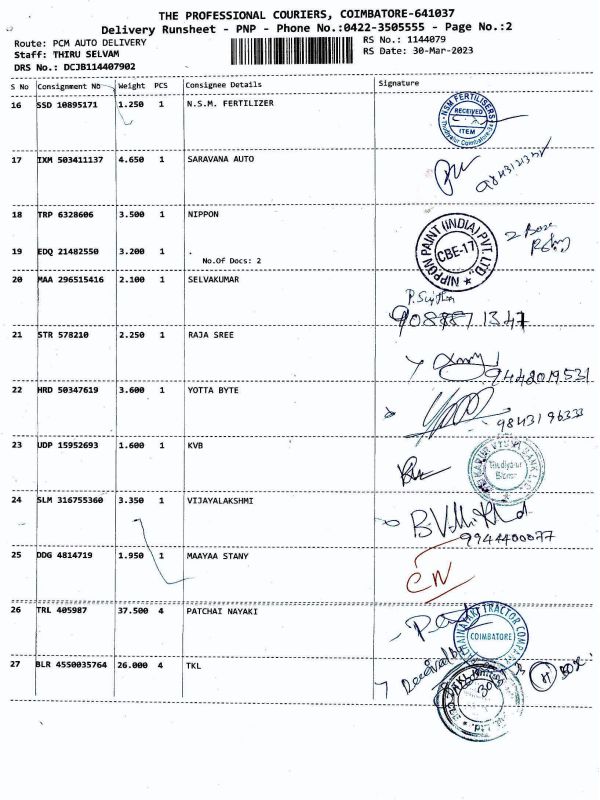 THE PROFESSIONAL COURIERS, COIMBATORE-641037
Delivery Runsheet - PNP - Phone No.:0422-3505555 - Page No.:2
Route: PCM AUTO DELIVERY
RS No.: 1144079
Staff: THIRU SELVAM
RS Date: 30-Mar-2023
DRS No.: DCJB114407902
S No Consignment No Weight PCS Consignee Details Signature
16 SSD 10895171 1.250 1 N.S.M. FERTILIZER
NSM FERTILISERS
RECEIVED
ITEM
17 IXM 503411137 4.650 1 SARAVANA AUTO
18 TRP 6328606 3.500 1 NIPPON
NIPPON PAINT (INDIA) PVT. LTD.
CBE-17
2 Box
19 EDQ 21482550 3.200 1 .
No.Of Docs: 2
20 MAA 296515416 2.100 1 SELVAKUMAR
21 STR 578210 2.250 1 RAJA SREE
9442019531
22 HRD 50347619 3.600 1 YOTTA BYTE
9843196333
23 UDP 15952693 1.600 1 KVB
24 SLM 316755360 3.350 1 VIJAYALAKSHMI
9944400077
25 DDG 4814719 1.950 1 MAAYAA STANY
26 TRL 405987 37.500 4 PATCHAI NAYAKI
COIMBATORE
27 BLR 4550035764 26.000 4 TKL